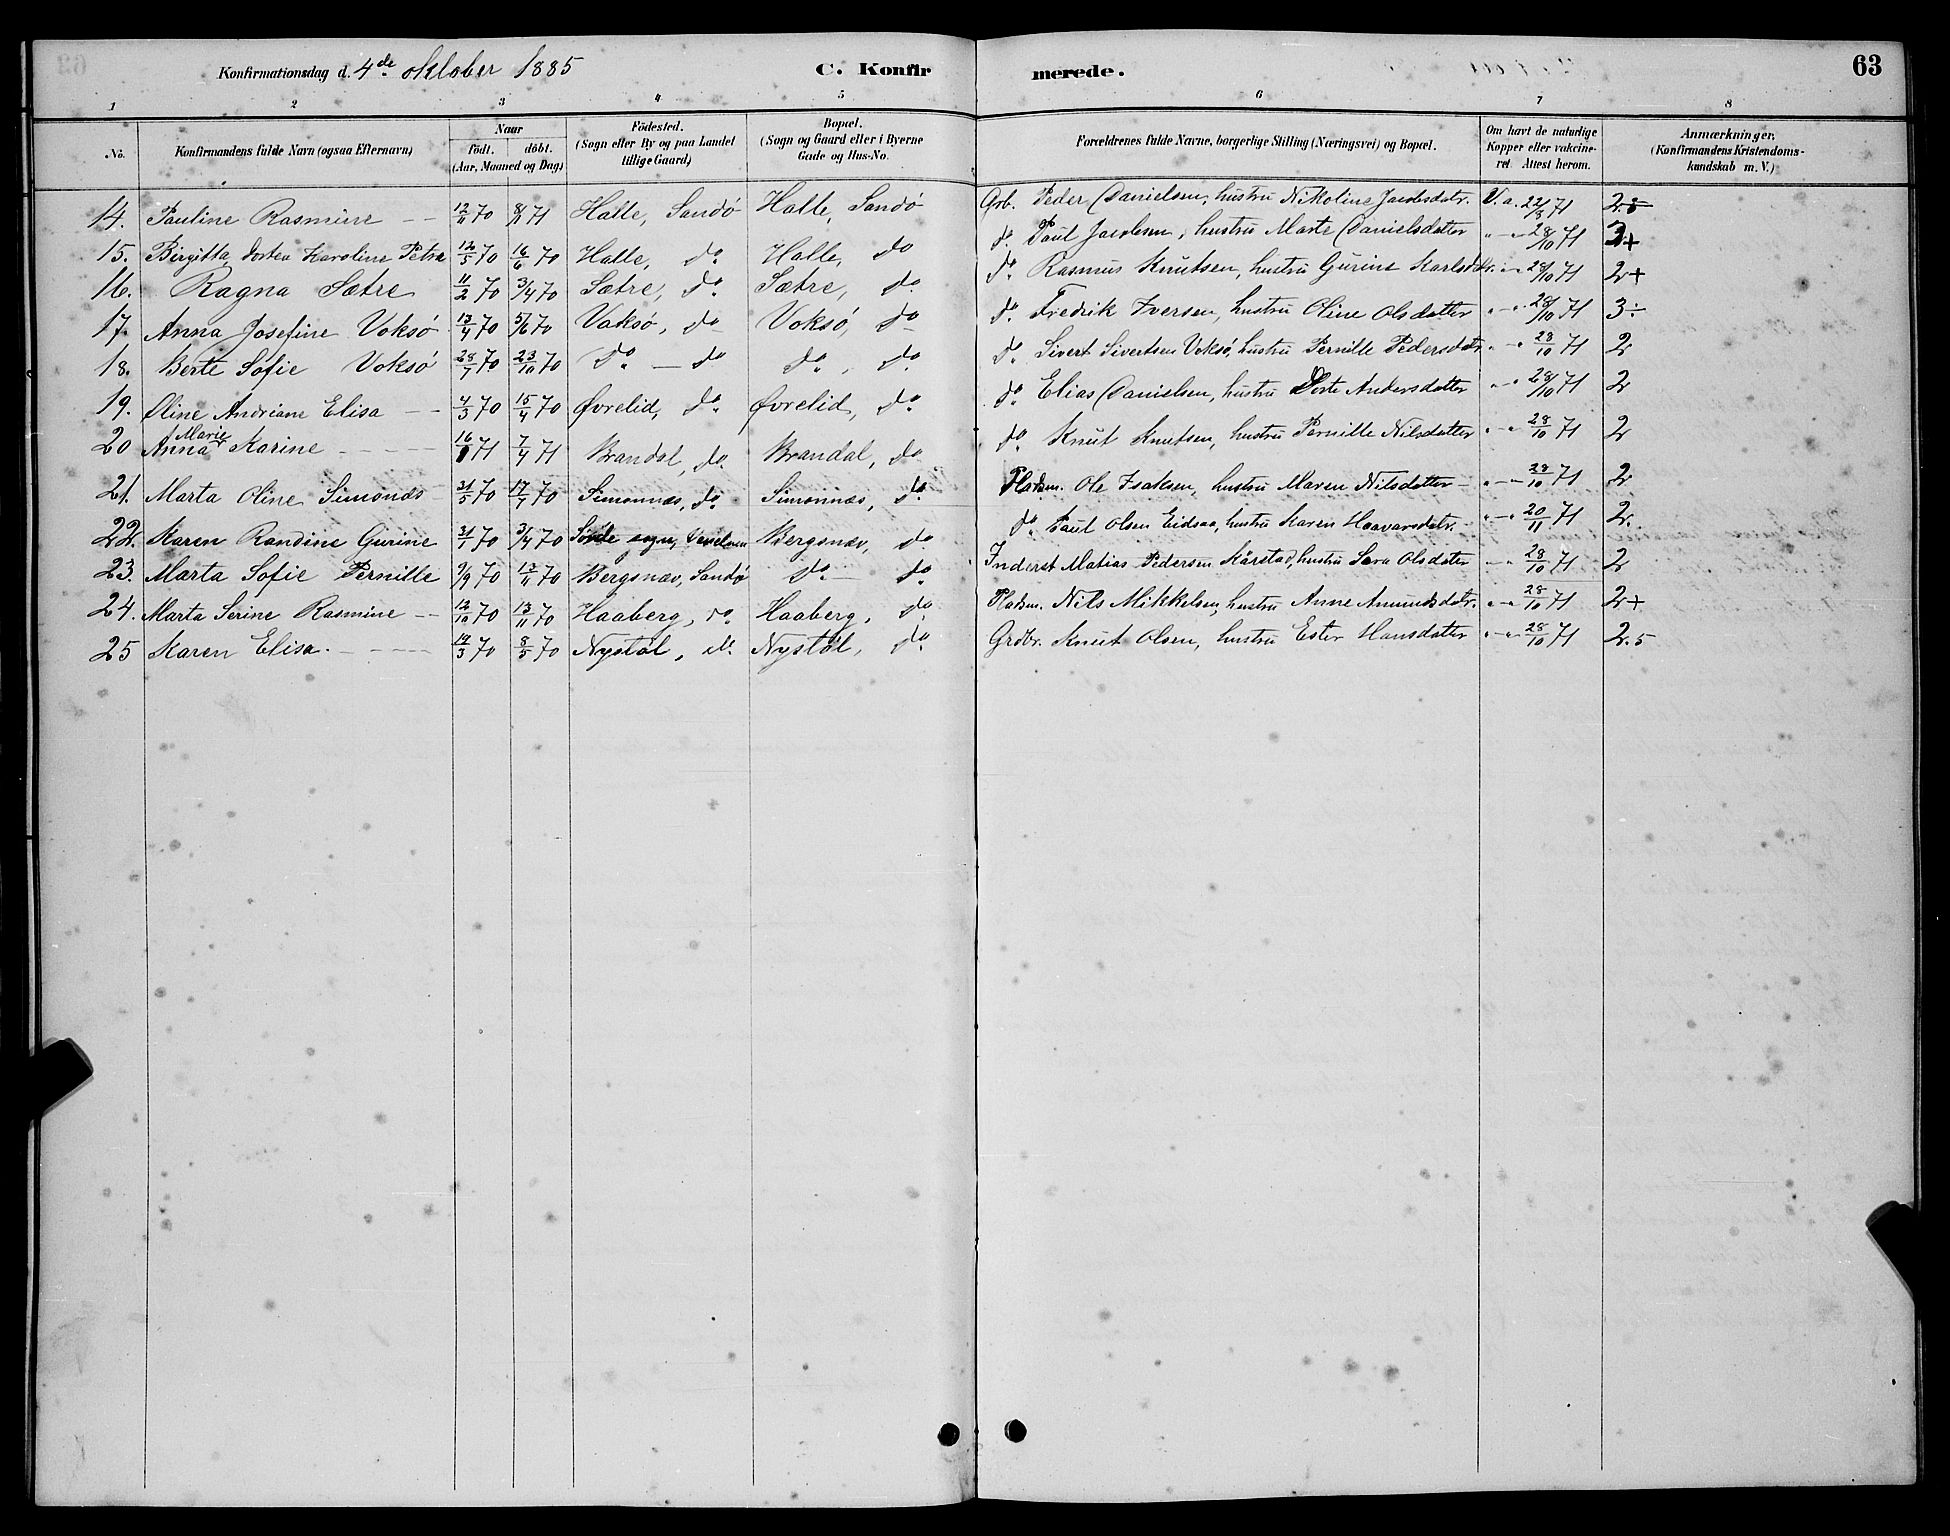 Konfirmationsdag d. 4de Oktober 1885 C. Konfirmerede. 63
1 2 3 4 5 6 7 8
No. Konfirmandens fulde Navn (ogsaa Efternavn) Naar födt. döbt. (Aar, Maaned og Dag) Födested. (Sogn efter By og paa Landet tillige Gaard) Bopæl. (Sogn og Gaard eller i Byerne Gade og Hus-No. Forældrenes fulde Navne, borgerlige Stilling (Næringsvei) og Bopæl. Om havt de naturlige Kopper eller vakcineret Attest herom. Anmærkninger. (Konfirmandens Kristendomskundskab m. V.)
14. Pauline Rasmine — — 70 8/1 71 Halle, Sandö Halle, Sandö Grb. Peder Danielsen, hustru Nikoline Jacobsdatr. V. a. 22/8 71 2.5
15. Birgitta Dortea Karoline Petra 12/5 70 16/6 70 Halle, do Halle, do do Paul Jacobsen, hustru Marte Danielsdatter " — " 28/10 71 +
16. Ragna Sætre 11/2 70 3/4 70 Sætre, do Sætre, do do Rasmus Knutsen, hustru Gurine Karlsdtr. " — " 28/10 71 2+
17. Anna Josefine Voksö 13/4 70 5/6 70 Voksö, do Voksö, do do Fredrik Iversen, hustru Oline Olsdatter " — " 28/10 71 3÷
18. Berte Sofie Voksö 28/7 70 23/10 70 do — do do, do do Sivert Sivertsen Voksö, hustru Pernille Pedersdatr. " — " 28/10 71 2
19. Oline Andriane Elisa — — 4/3 70 15/4 70 Øvrelid, do Øvrelid, do do Elias Danielsen, hustru Dorte Andersdatter " — " 28/10 71 2
20 Anna Marie Karine — — — 71 7/4 71 Brandal, do Brandal, do do Knut Knutsen, hustru Pernille Nilsdatter " — " 28/10 71 2
21. Marta Oline Simonds 31/5 70 17/7 70 Simonnæs, do Simonnæs, do Pladsm. Ole Isaksen, hustru Maren Nilsdatter — " — " 28/10 71 2
22. Karen Randine Gurine 70 3/4 70 sogn, Bergsnæv, do do Paul Olsen Eidsaa, hustru Karen Haavarsdatr. " — " 20/11 71 2.
23. Marta Sofie Pernille 9/9 70 13/11 70 Bergsnæv, Sandö do — do Inderst Matias Pedersen Kårstad, hustru Sara Olsdatter — " 28/10 71 2
24. Marta Serine Rasmine — 12/10 70 13/11 70 Haaberg, do Haaberg, do Pladsm. Nils Mikkelsen, hustru Anne Amundsdatr. " — " 28/10 71 2+
25 Karen Elisa. — — — 19/3 70 8/5 70 Nystöl, do Nystöl, do Grdbr. Knut Olsen, hustru Ester Hansdatter " — " 28/10 71 2.5